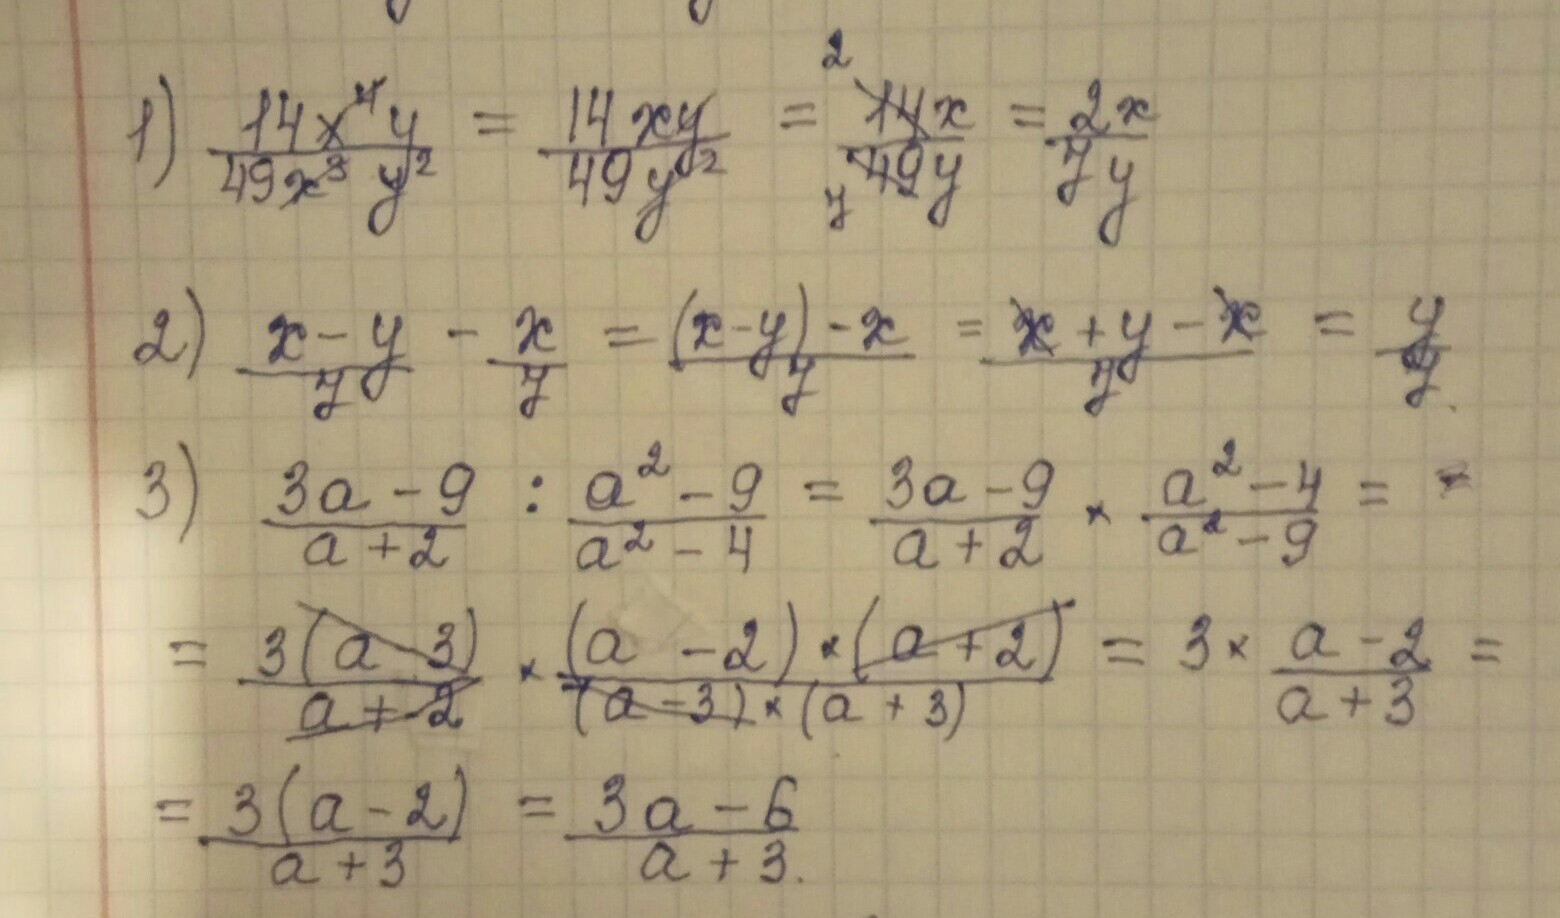 1) 14x⁴y/49x³y² = 14xy/49y² = 2 14x/7 49y = 2x/7y
2) x-y/7 - x/7 = (x-y)-x/7 = x+y-x/7 = y/7
3) 3a-9/a+2 : a²-9/a²-4 = 3a-9/a+2 × a²-4/a²-9 =
= 3(a-3)/a+2 × (a-2)×(a+2)/(a-3)×(a+3) = 3× a-2/a+3 =
= 3(a-2)/a+3 = 3a-6/a+3.